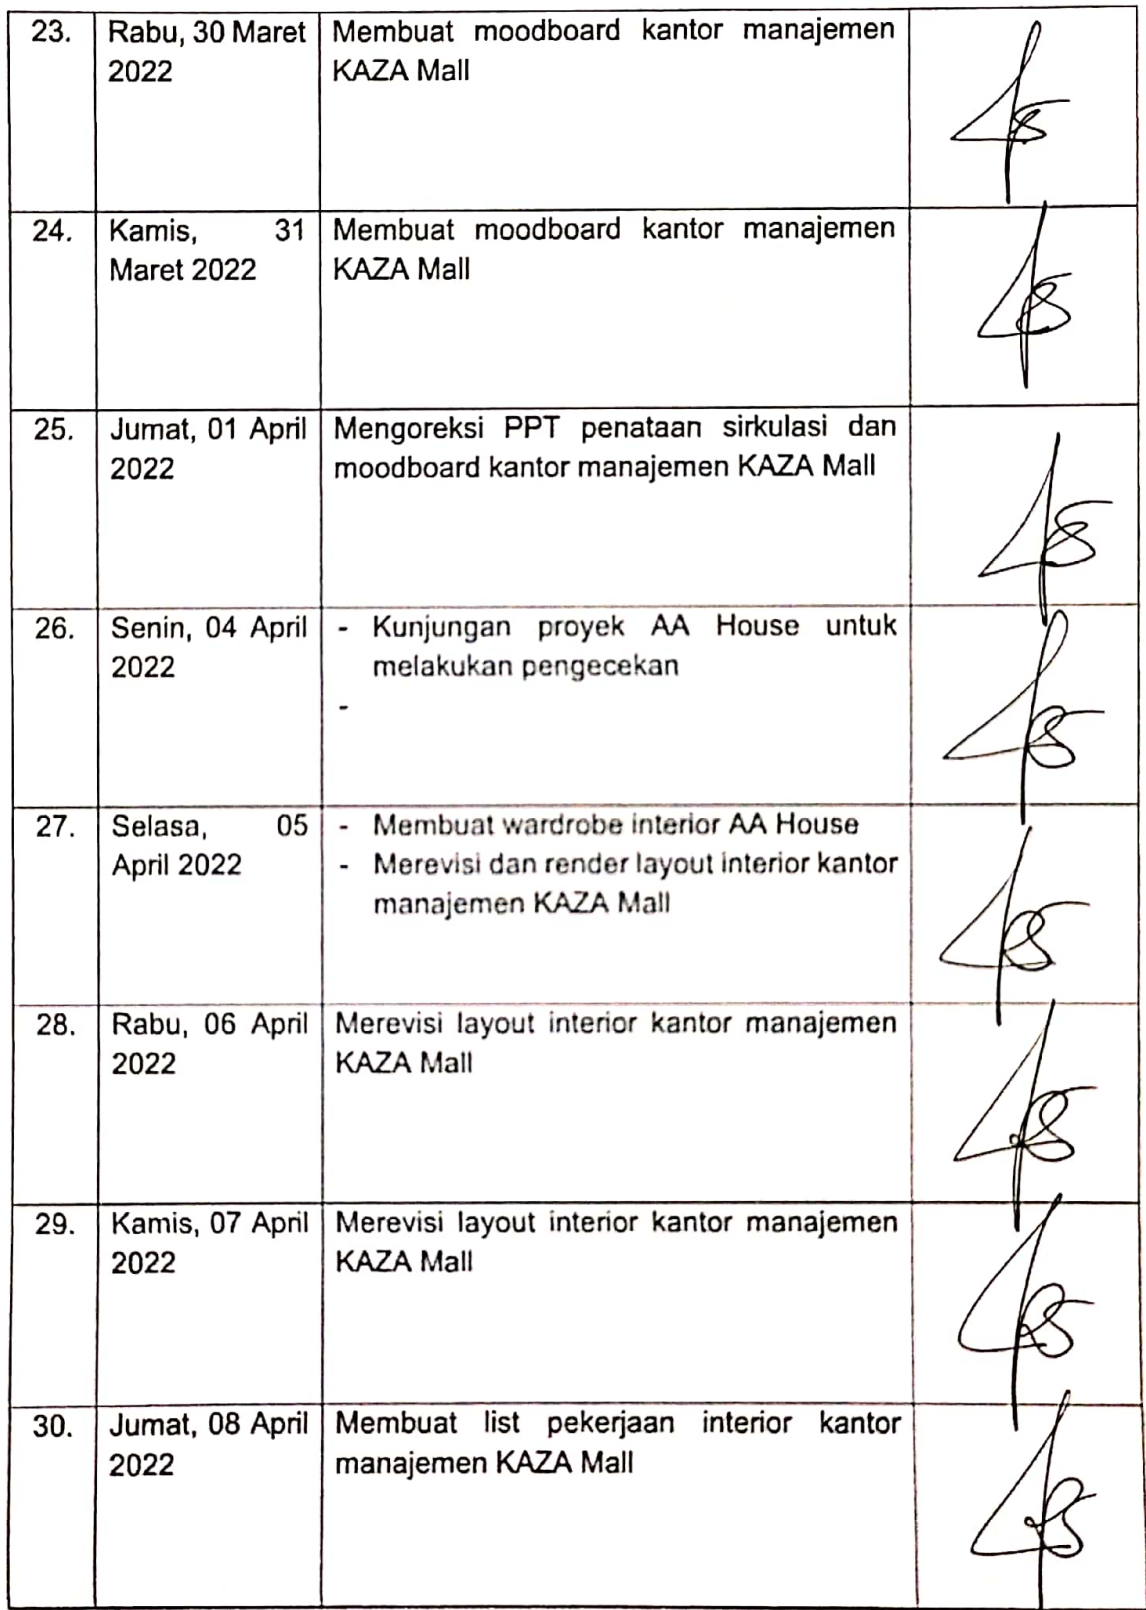 23. Rabu, 30 Maret Membuat moodboard kantor manajemen
2022 KAZA Mall
24. Kamis, 31 Membuat moodboard kantor manajemen
Maret 2022 KAZA Mall
25. Jumat, 01 April Mengoreksi PPT penataan sirkulasi dan
2022 moodboard kantor manajemen KAZA Mall
26. Senin, 04 April - Kunjungan proyek AA House untuk
2022 melakukan pengecekan
-
27. Selasa, 05 - Membuat wardrobe interior AA House
April 2022 - Merevisi dan render layout interior kantor
manajemen KAZA Mall
28. Rabu, 06 April Merevisi layout interior kantor manajemen
2022 KAZA Mall
29. Kamis, 07 April Merevisi layout interior kantor manajemen
2022 KAZA Mall
30. Jumat, 08 April Membuat list pekerjaan interior kantor
2022 manajemen KAZA Mall